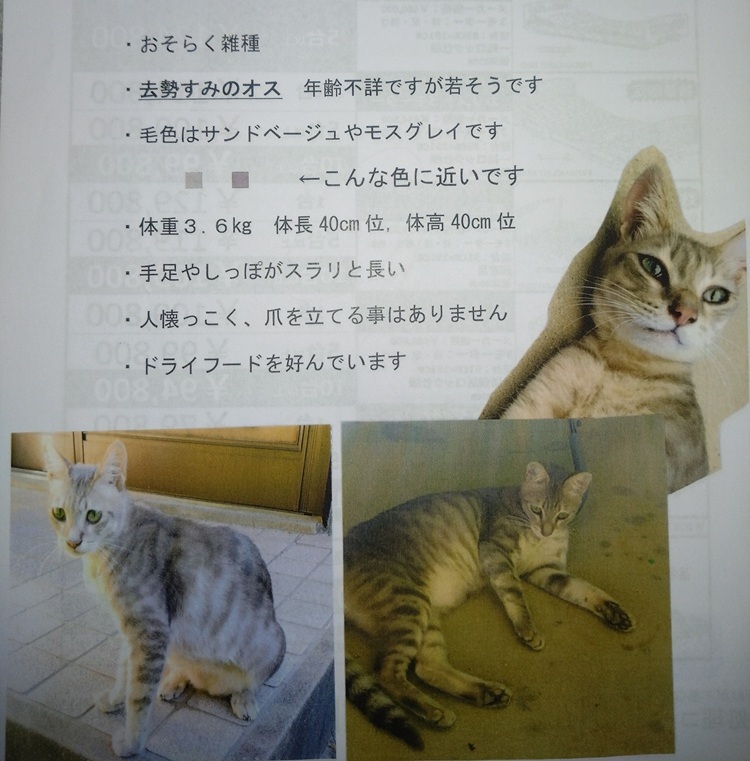 ・おそらく雑種
・去勢すみのオス　年齢不詳ですが若そうです
・毛色はサンドベージュやモスグレイです
←こんな色に近いです
・体重３.６kg　体長40cm位, 体高40cm位
・手足やしっぽがスラリと長い
・人懐っこく、爪を立てる事はありません
・ドライフードを好んでいます